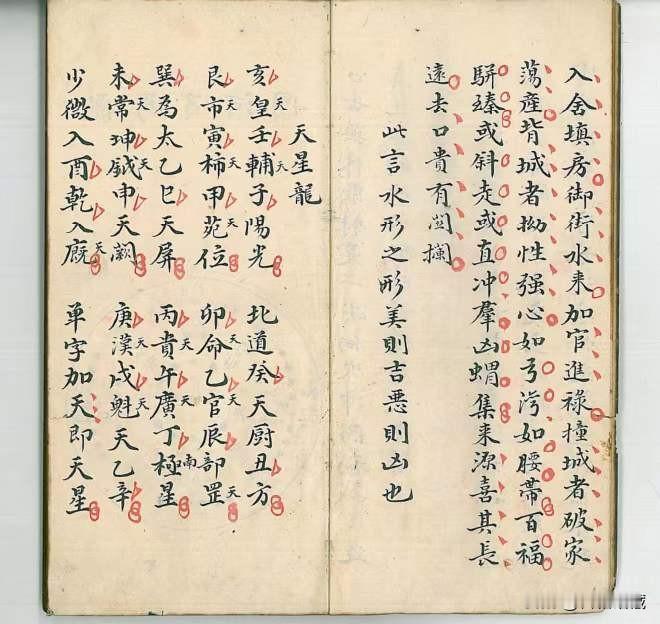 入舍填房御街水来加官進禄撞城者破家
蕩產背城者拗性强心如弓湾如腰帶百福
駢臻或斜走或直冲羣凶蝟集来源喜其長
遠去口貴有関攔
此言水形之形美則吉恶則凶也
天星龍
亥皇壬輔子陽光 北道癸天厨丑方
艮天市寅天柿甲天苑位 卯天命乙天官辰部天罡
巽為太乙巳天屏 丙天貴午天廣丁南極星
未天常坤天鉞申天闕 庚天漢戌天魁天乙辛
少微入酉乾入天廐 单字加天即天星